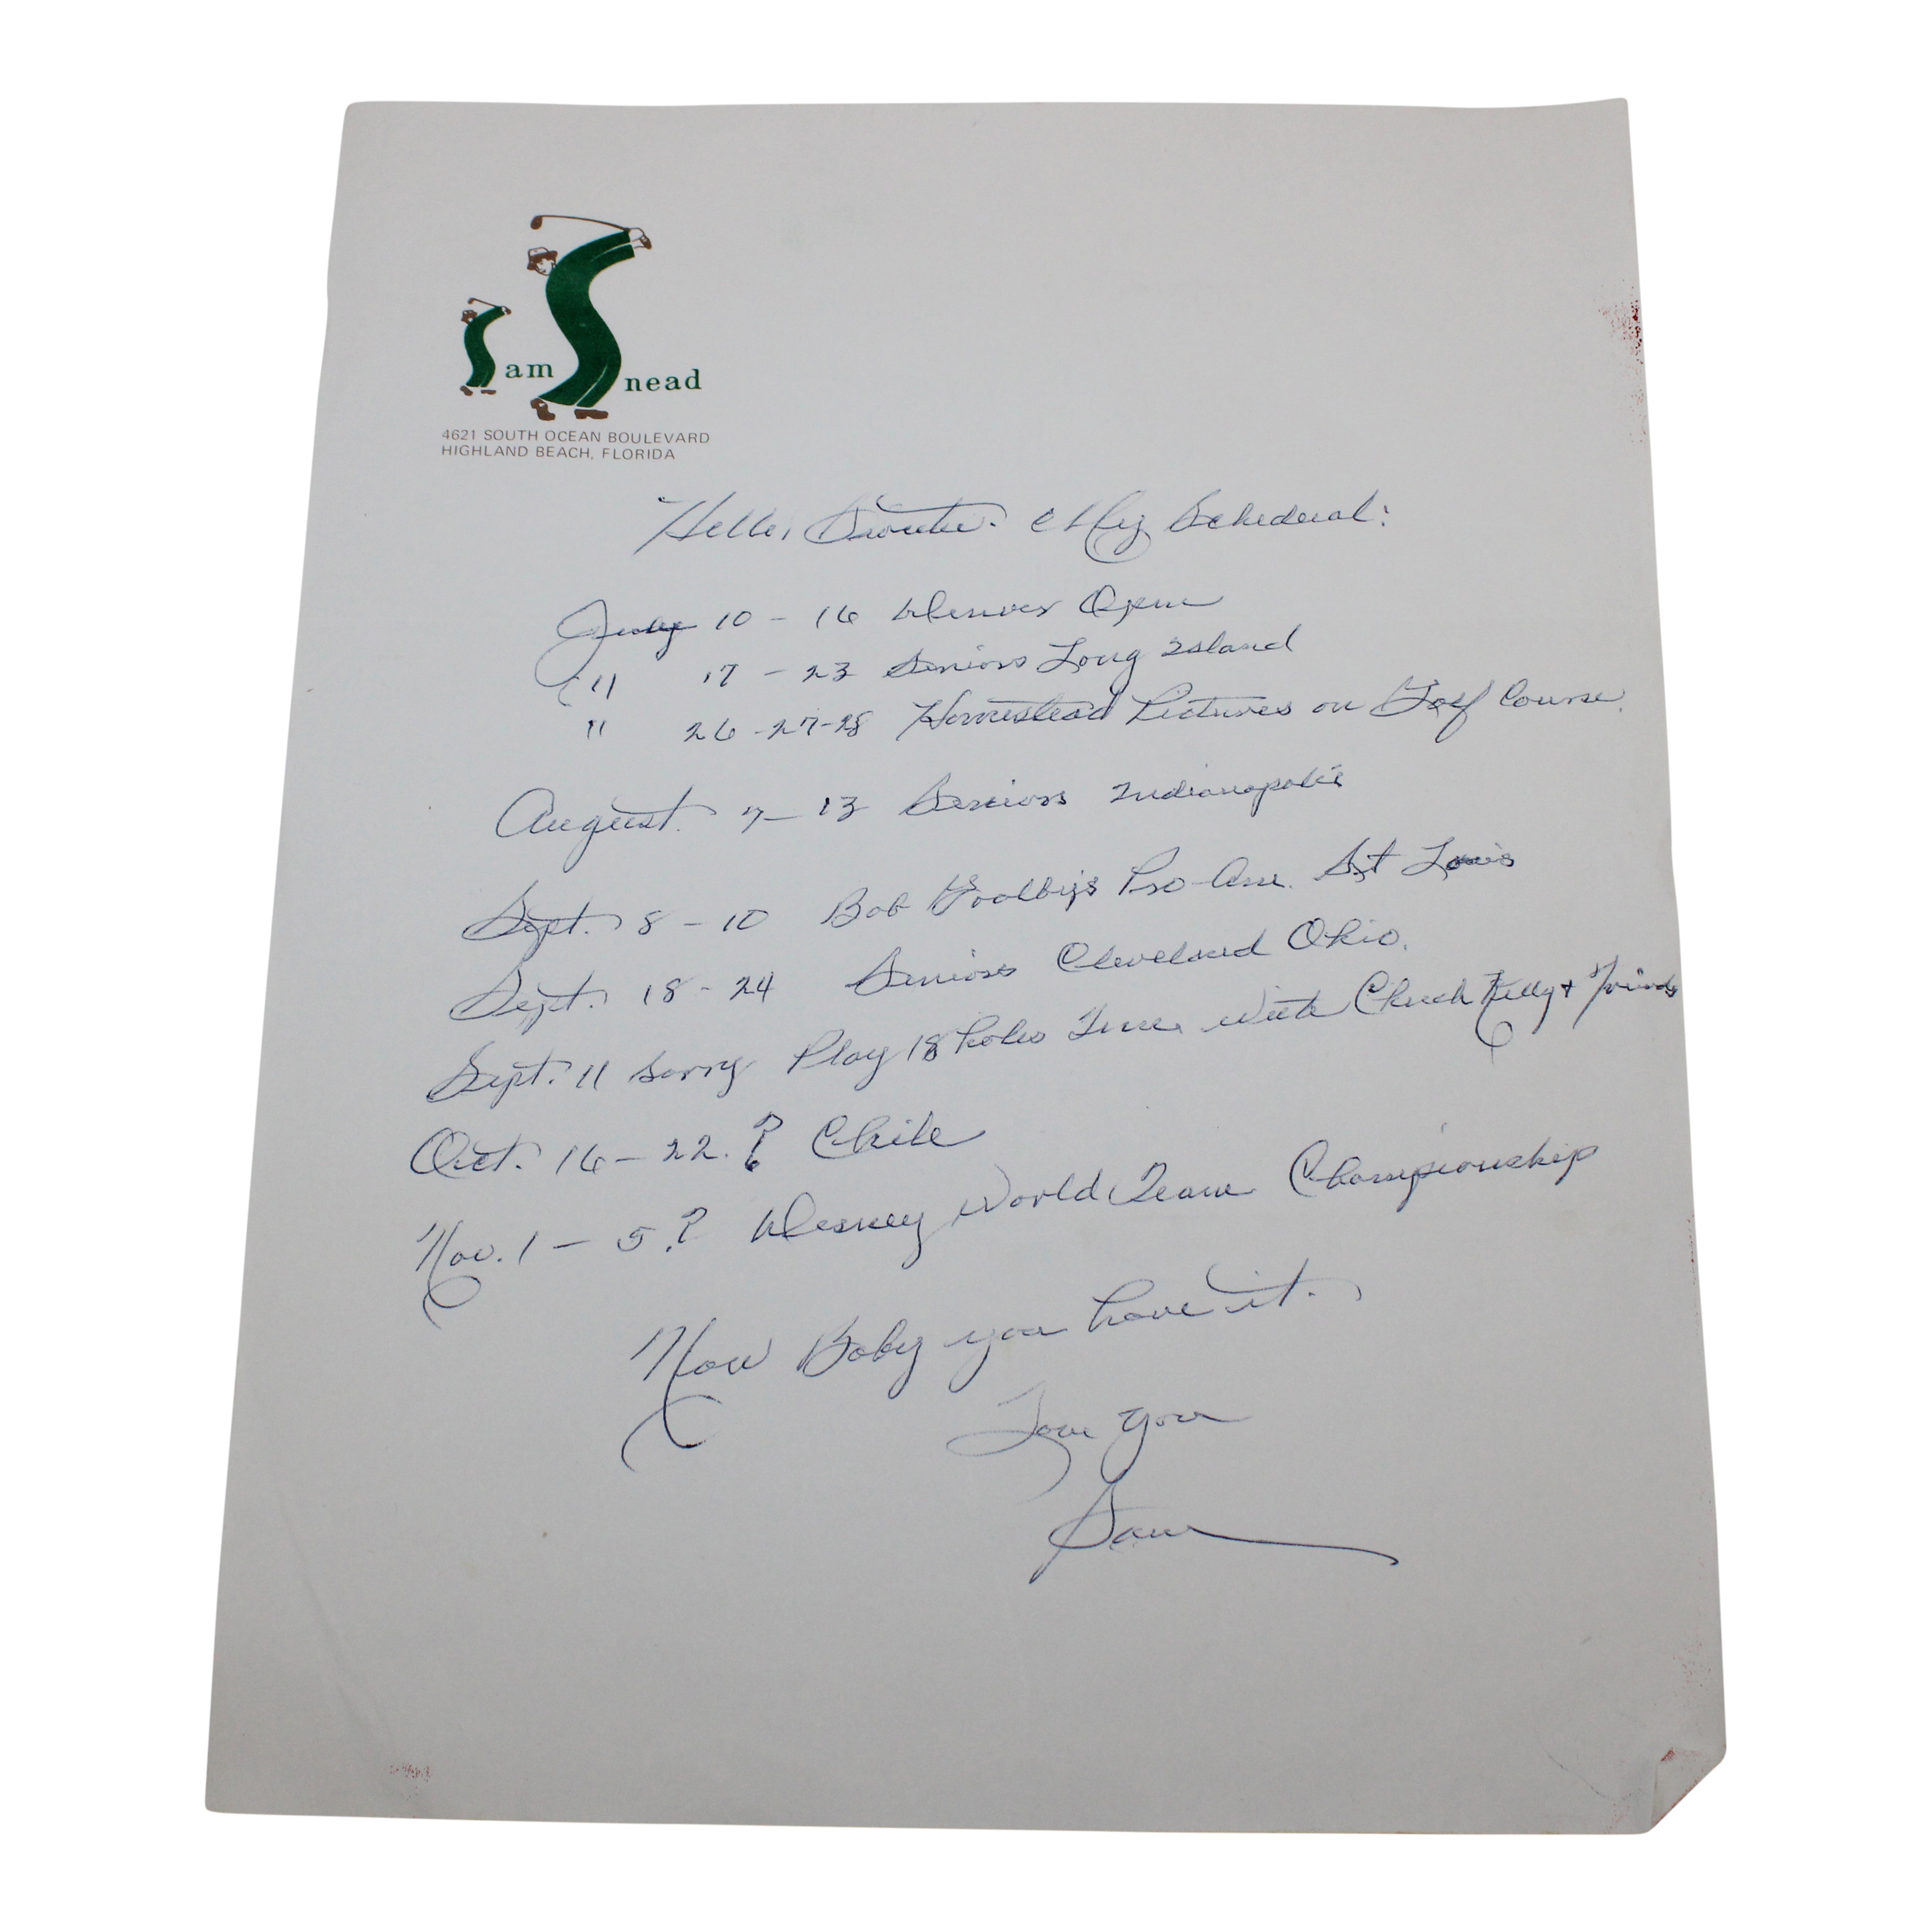 Sam Snead
4621 SOUTH OCEAN BOULEVARD
HIGHLAND BEACH, FLORIDA
Hello, My Schedeual:
July 10 - 16 Denver Open
" 17 - 23 Seniors Long Island
" 26 - 27 - 28 Homestead Pictures on Golf Course.
August. 7 - 13 Seniors Indianapolis
Sept. 8 - 10 Bob Goalby's Pro-Am. St Louis
Sept. 18 - 24 Seniors Cleveland Ohio.
Sept. 11 sorry Play 18 holes with Chuck Kelly + Friends
Oct. 16 - 22. ? Chile
Nov. 1 - 5. ? Desney World Team Championship
Now Baby you have it.
Love You
Sam